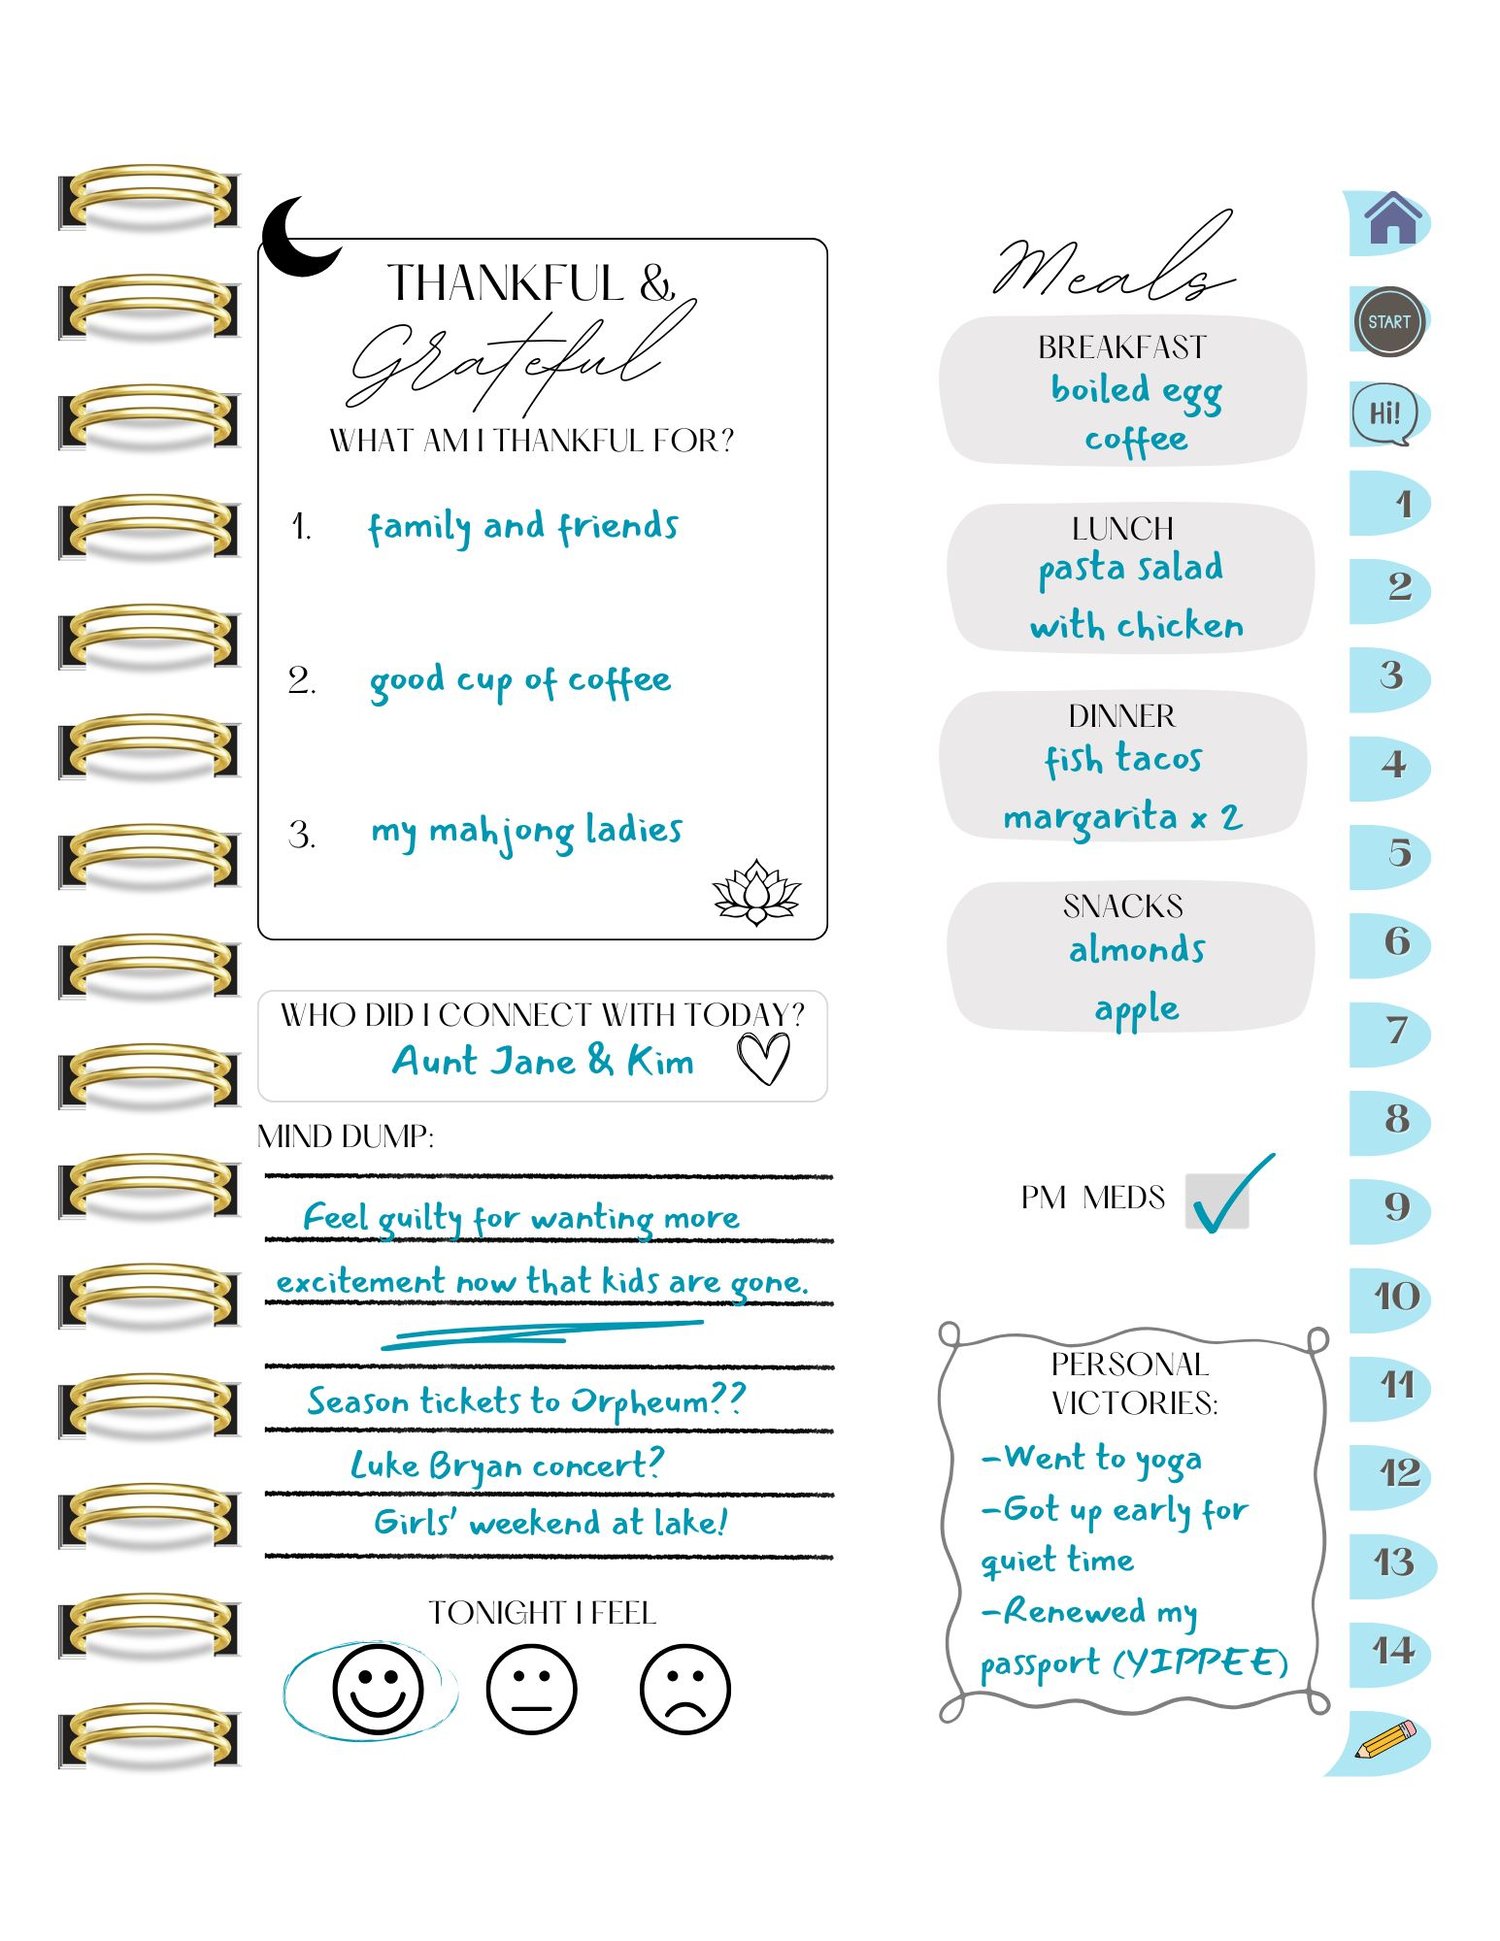 THANKFUL &
Grateful
WHAT AM I THANKFUL FOR?
1. family and friends
2. good cup of coffee
3. my mahjong ladies
WHO DID I CONNECT WITH TODAY?
Aunt Jane & Kim
MIND DUMP:
Feel guilty for wanting more
excitement now that kids are gone.
Season tickets to Orpheum??
Luke Bryan concert?
Girls' weekend at lake!
TONIGHT I FEEL
Meals
BREAKFAST
boiled egg
coffee
LUNCH
pasta salad
with chicken
DINNER
fish tacos
margarita x 2
SNACKS
almonds
apple
PM MEDS
PERSONAL
VICTORIES:
-Went to yoga
-Got up early for
quiet time
-Renewed my
passport (YIPPEE)
START
Hi!
1
2
3
4
5
6
7
8
9
10
11
12
13
14